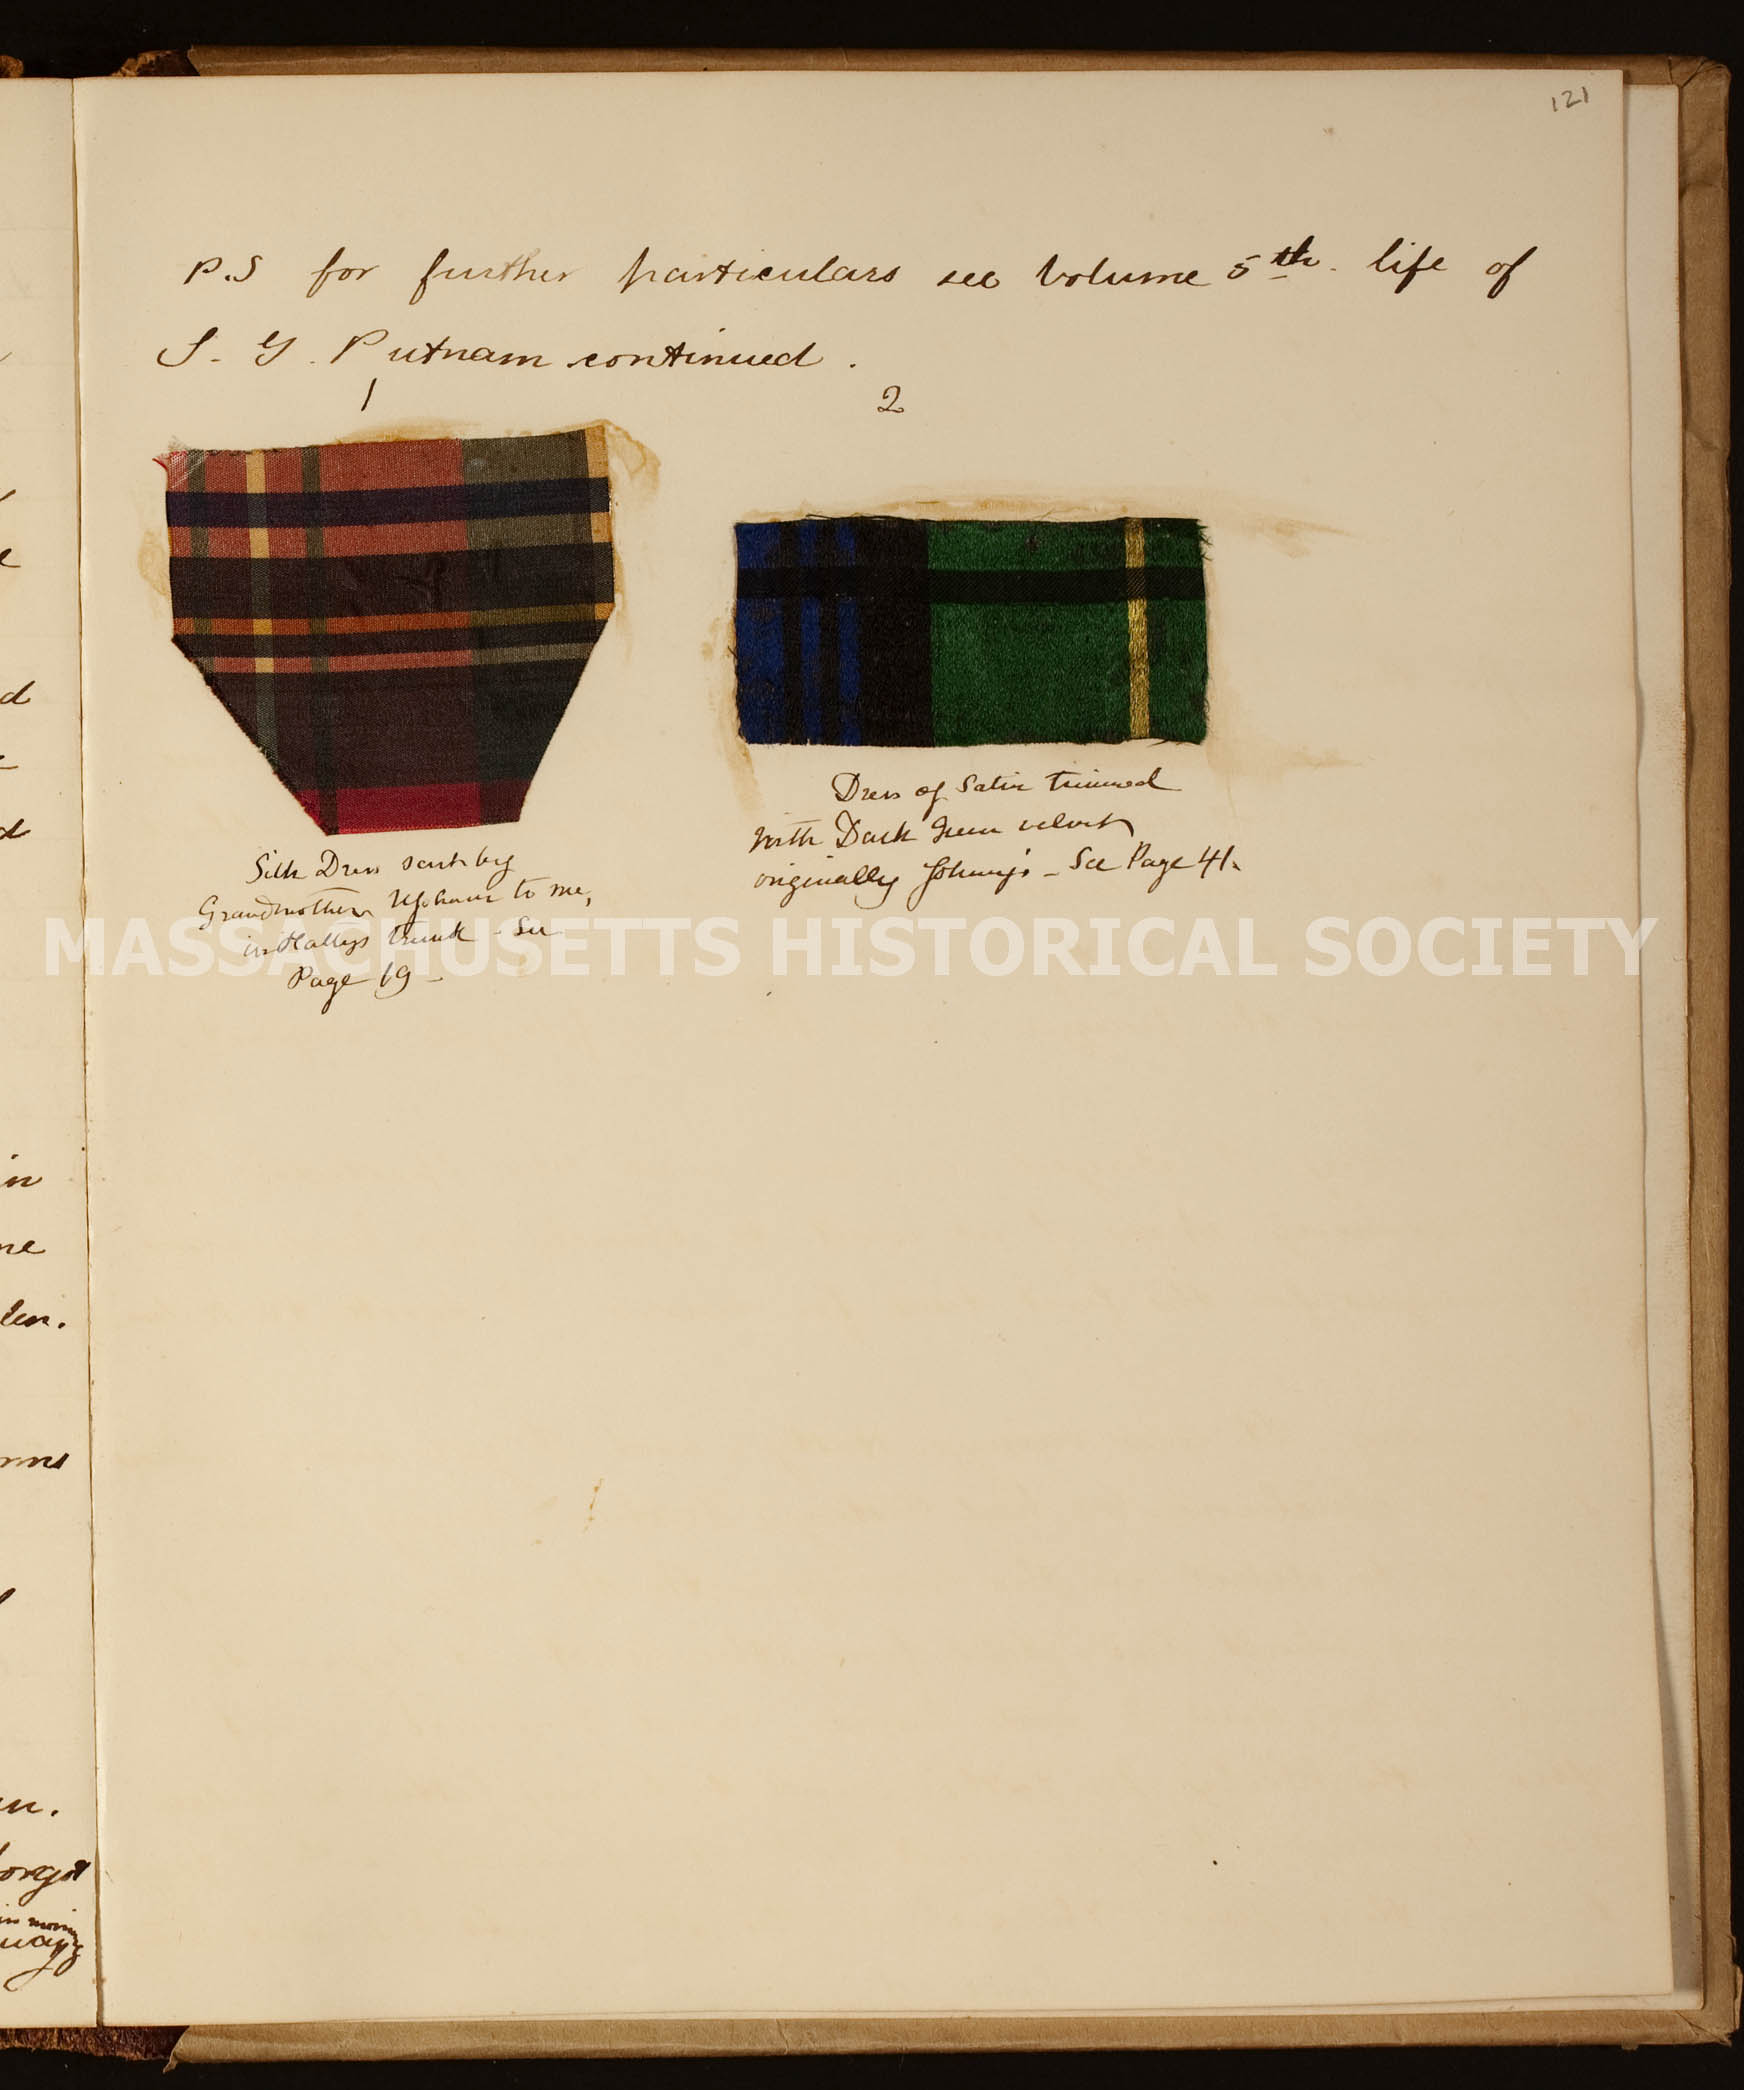 121
P.S for further particulars see Volume 5th. life of
S. G. Putnam continued.
1
2
Silk Dress sent by
Grandmother Upham to me,
in Hattys trunk - See
Page 19 -
Dress of Satin trimmed
with Dark Green velvet
originally Johnny's - See Page 41.
MASSACHUSETTS HISTORICAL SOCIETY
d
d
in
ne
len.
rms